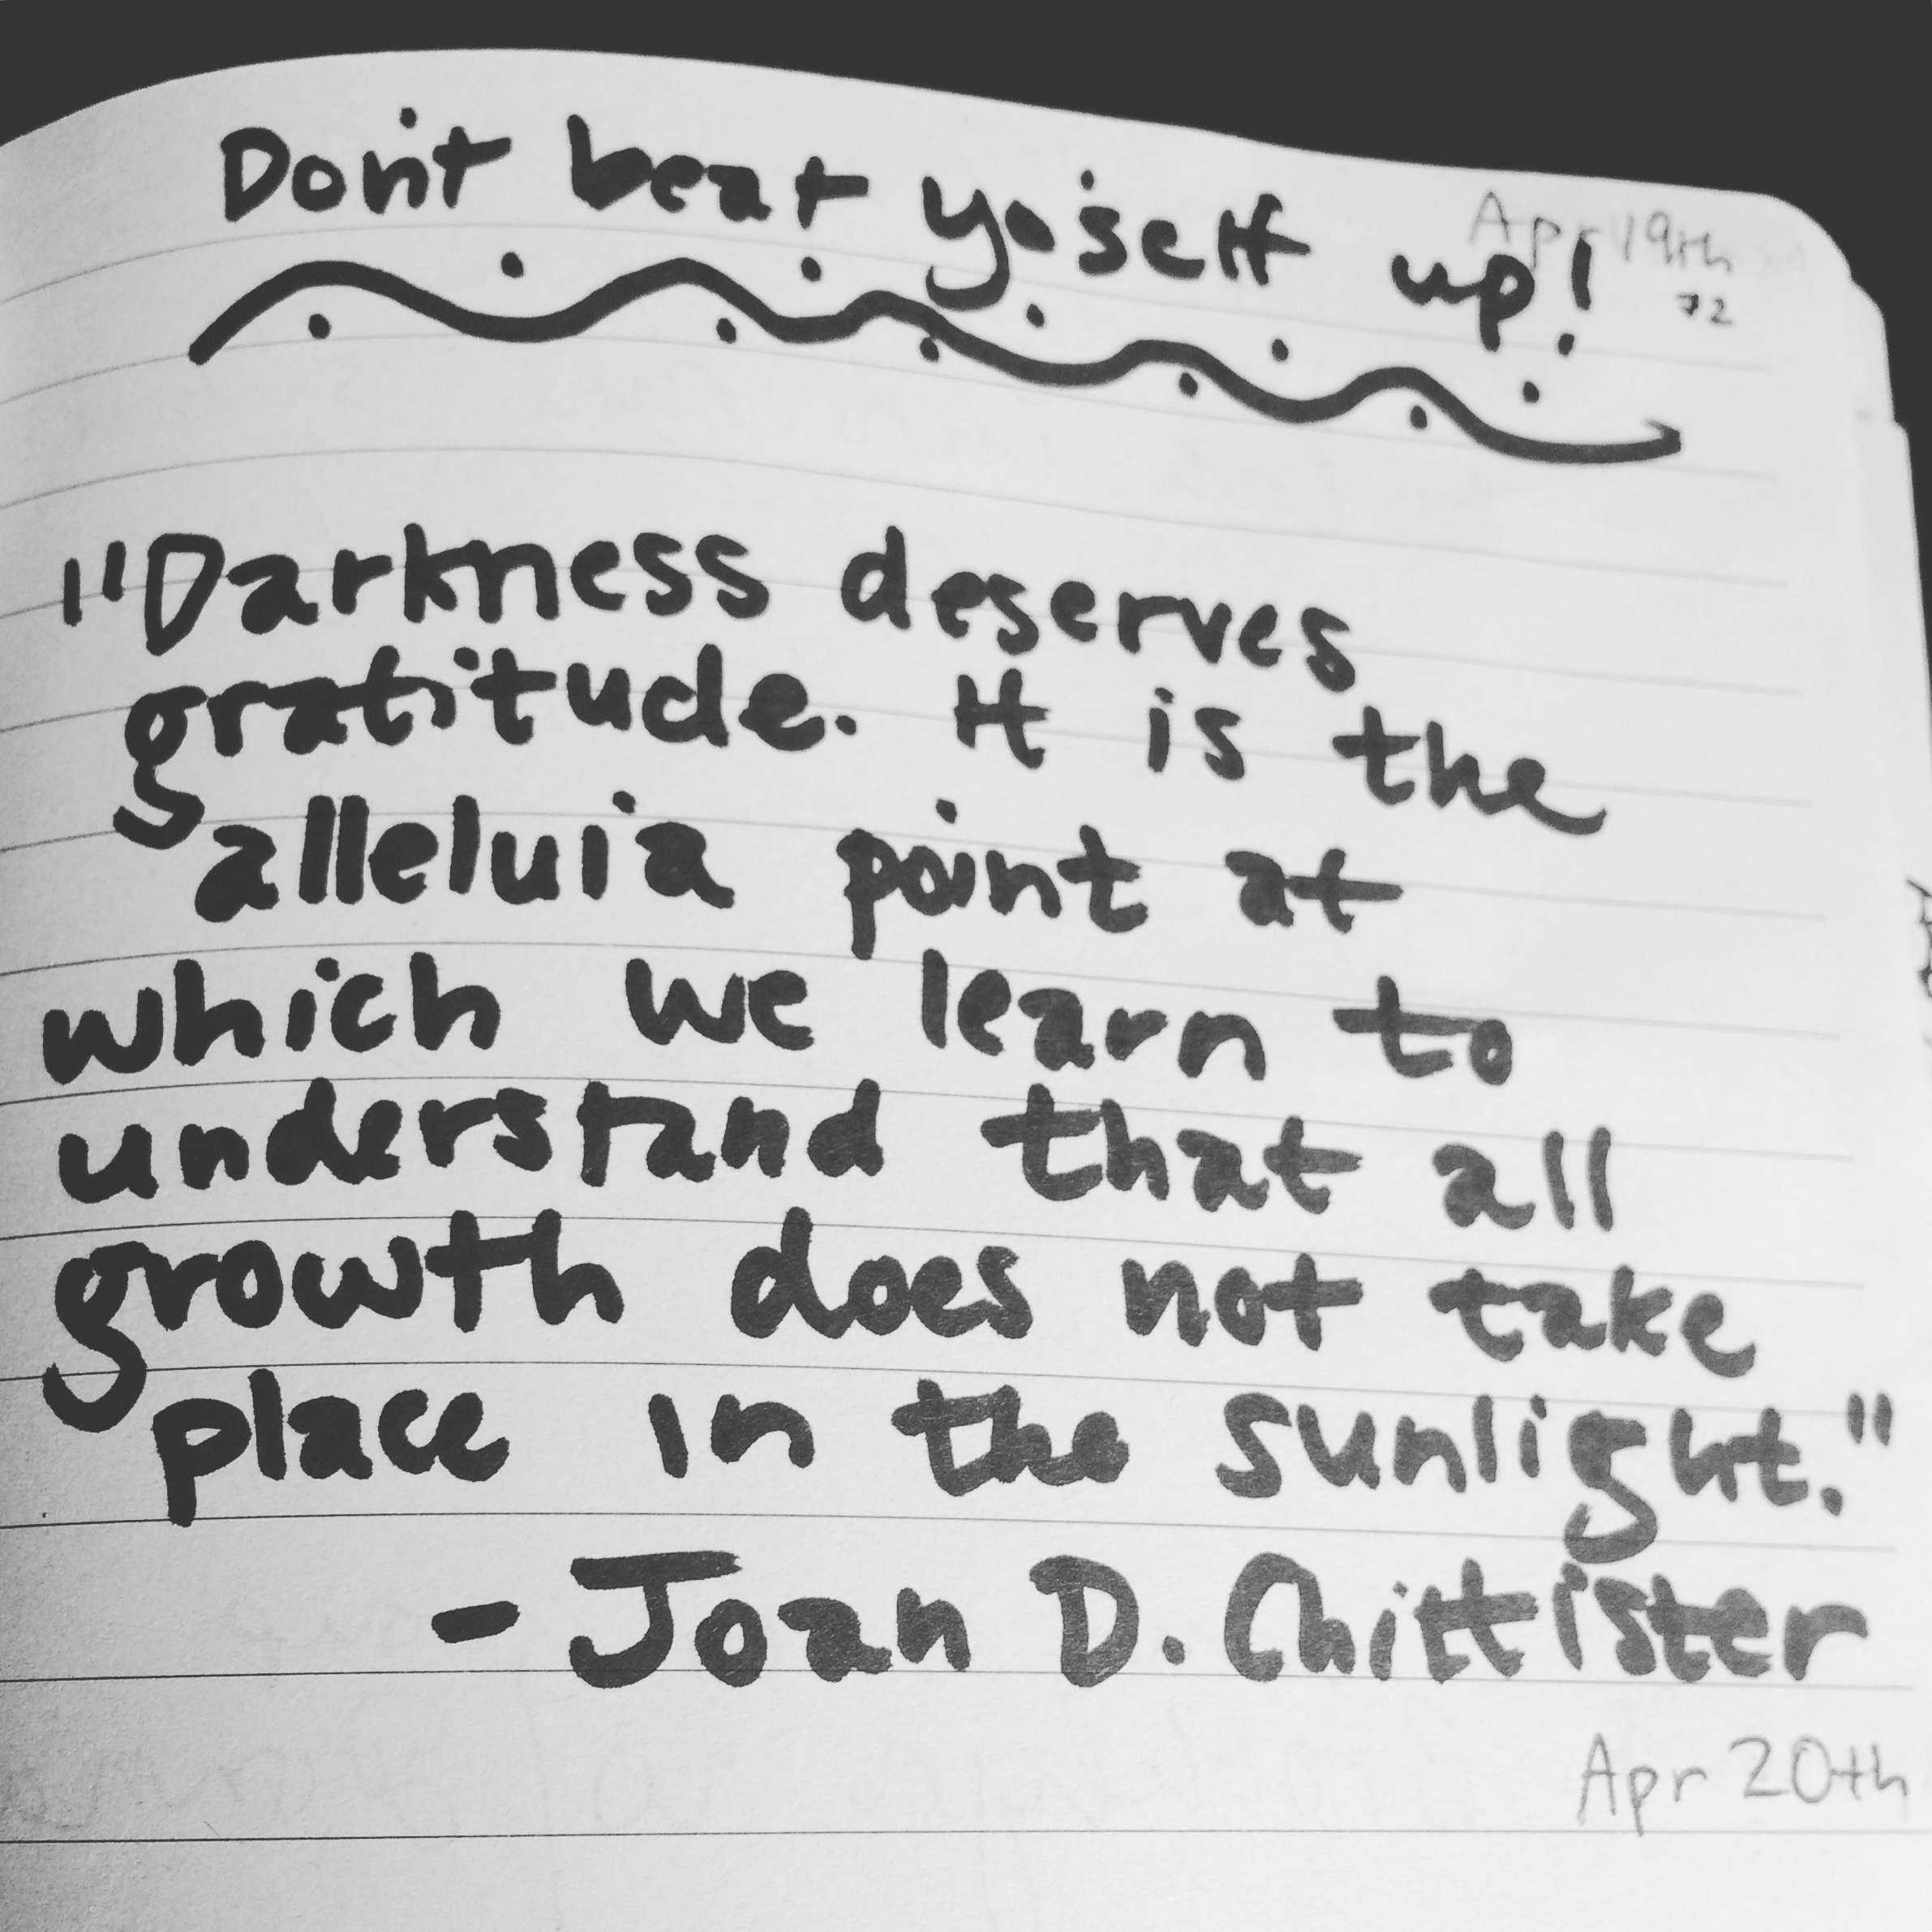 Don't beat yo'self up!
Apr 19th
72
"Darkness deserves
gratitude. It is the
alleluia point at
which we learn to
understand that all
growth does not take
place in the sunlight."
- Joan D. Chittister
Apr 20th